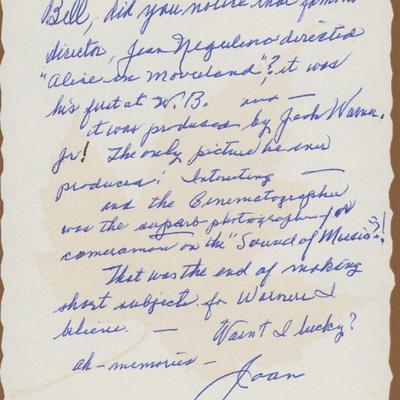 Bill, did you notice that famous
director, Jean Negulesco directed
"Alice in Movieland"? it was
his first at W.B. and —
it was produced by Jack Warner,
Jr! The only picture he ever
produced! Interesting —
and the Cinematographer
was the superb photographer for
cameraman on the "Sound of Music"?!
That was the end of making
short subjects for Warners I
believe. — Wasn't I lucky?
ah - memories -
Joan